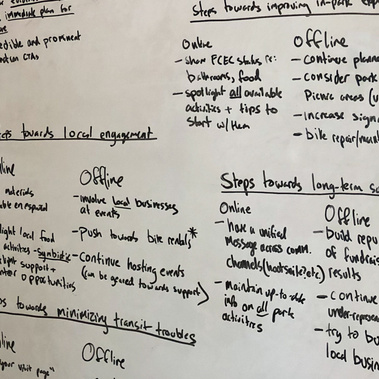 immediate plan for
edible and prominent
CTAs
Steps towards improving in-park exp
Online
- show FCEC status re:
bathrooms, food
- spotlight all available
activities + tips to
start w/ them
Offline
- continue planne
- consider park
picnic areas (u
- increase sign
- bike repair/main
eps towards local engagement
line
materials
ble en español
light local food
activities - symbiotic
support +
opportunities
Offline
- involve local businesses
at events
- Push towards bike rentals*
- Continue hosting events
(can be geared towards support)
Steps towards long-term su
Online
- have a unified
message across comm.
channels (hootsuite? etc)
- maintain up-to-date
info on all park
activities
Offline
- build repu
of fundrais
results
- continue
under-represen
- try to bu
local busin
ps towards minimizing transit troubles
line
your visit page"
Offline